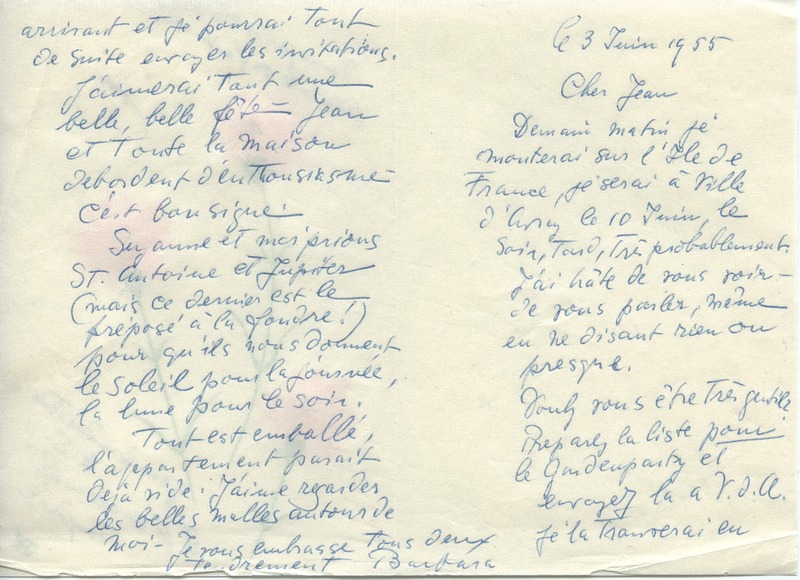 le 3 Juin 1955
Cher Jean
Demain matin je
monterai sur l'Ile de
France, je serai à Ville
d'Avray le 10 Juin, le
Soir, Tard, Très probablement
J'ai hâte de vous voir -
de vous parler, même
en ne disant rien ou
presque.
Voulez vous être Très gentil?
Preparez la liste pour
le Gardenparty et
envoyez la a V.d.A.
je la Trouverai en
arrivant et je pourrai Tout
de suite envoyer les invitations.
J'aimerai Tant une
belle, belle fête - Jean
et Toute la maison
debordent d'enThousiasme -
C'est bon signe!
Suzanne et moi prions
St. Antoine et Jupiter
(mais ce dernier est le
préposé à la foudre!)
pour qu'ils nous donnent
le soleil pour la journée,
la lune pour le soir.
Tout est emballé,
l'appartement parait
déjà vide: J'aime regarder
les belles malles autour de
moi - Je vous embrasse Tous deux
Tendrement Barbara